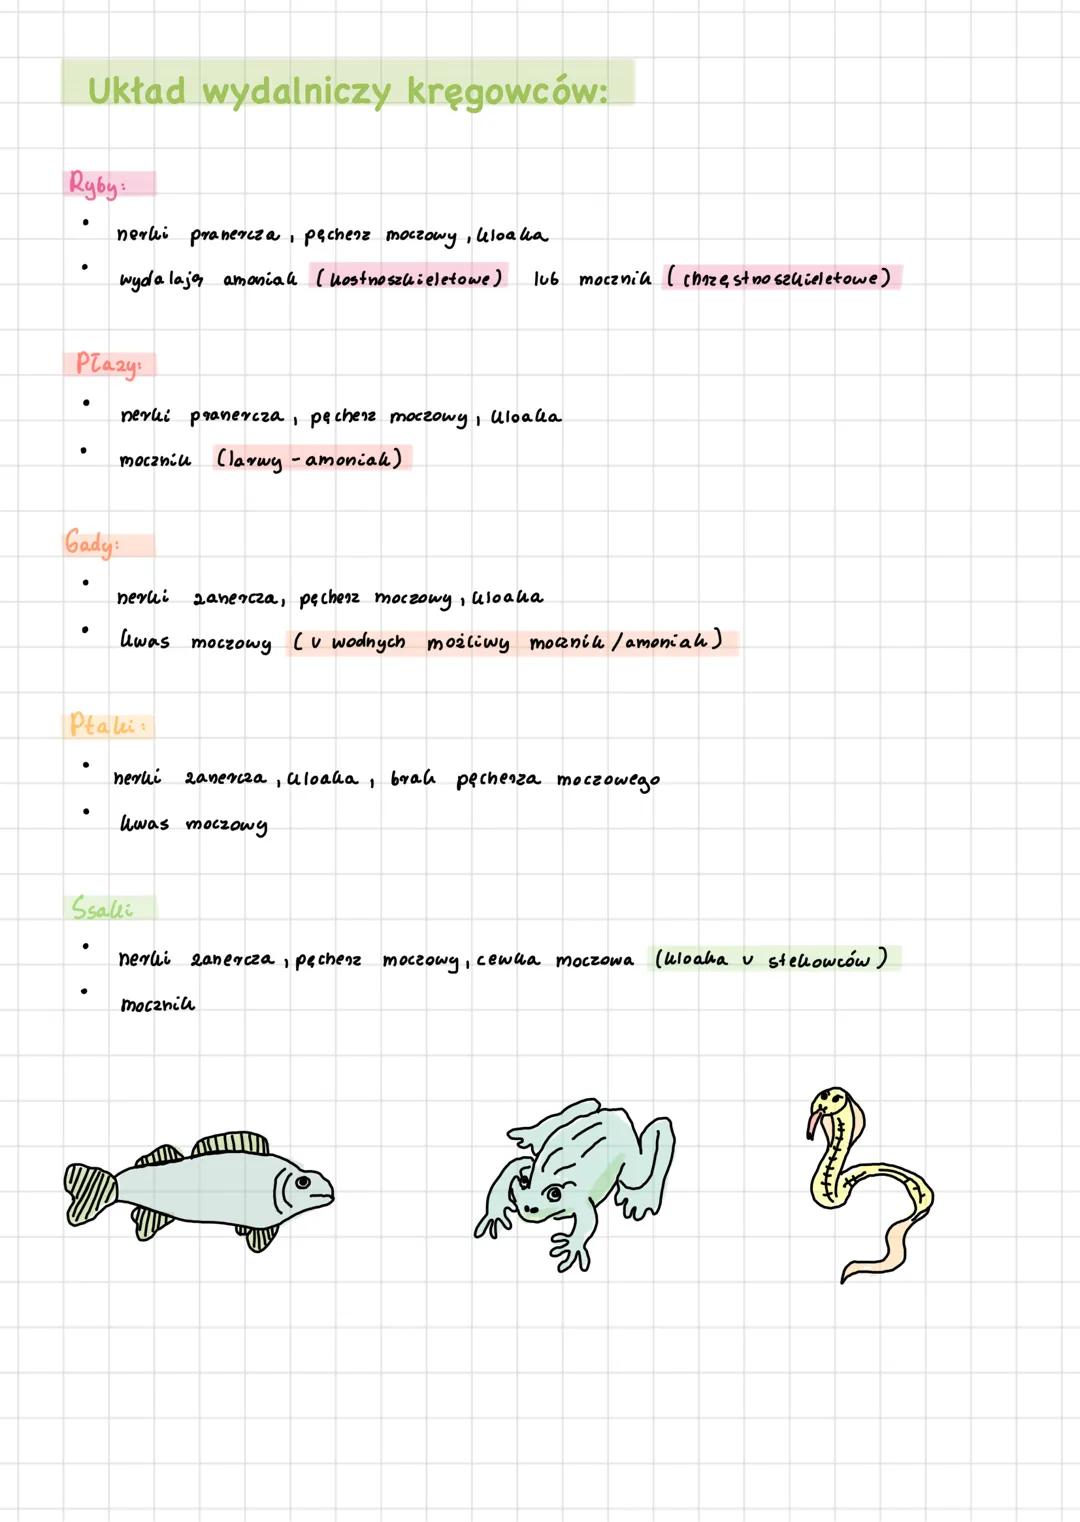 Układ wydalniczy kręgowców:
Ryby:
• nerki pranercza, pęcherz moczowy, kloaka
• wydalają amoniak (kostnoszkieletowe) lub mocznik (chrzęstnoszkieletowe)
Płazy:
• nerki pranercza, pęcherz moczowy, kloaka
• mocznik (larwy - amoniak)
Gady:
• nerki zanercza, pęcherz moczowy, kloaka
• kwas moczowy (u wodnych możliwy mocznik/amoniak)
Ptaki:
• nerki zanercza, kloaka, brak pęcherza moczowego
• kwas moczowy
Ssaki
• nerki zanercza, pęcherz moczowy, cewka moczowa (kloaka u stekowców)
• mocznik